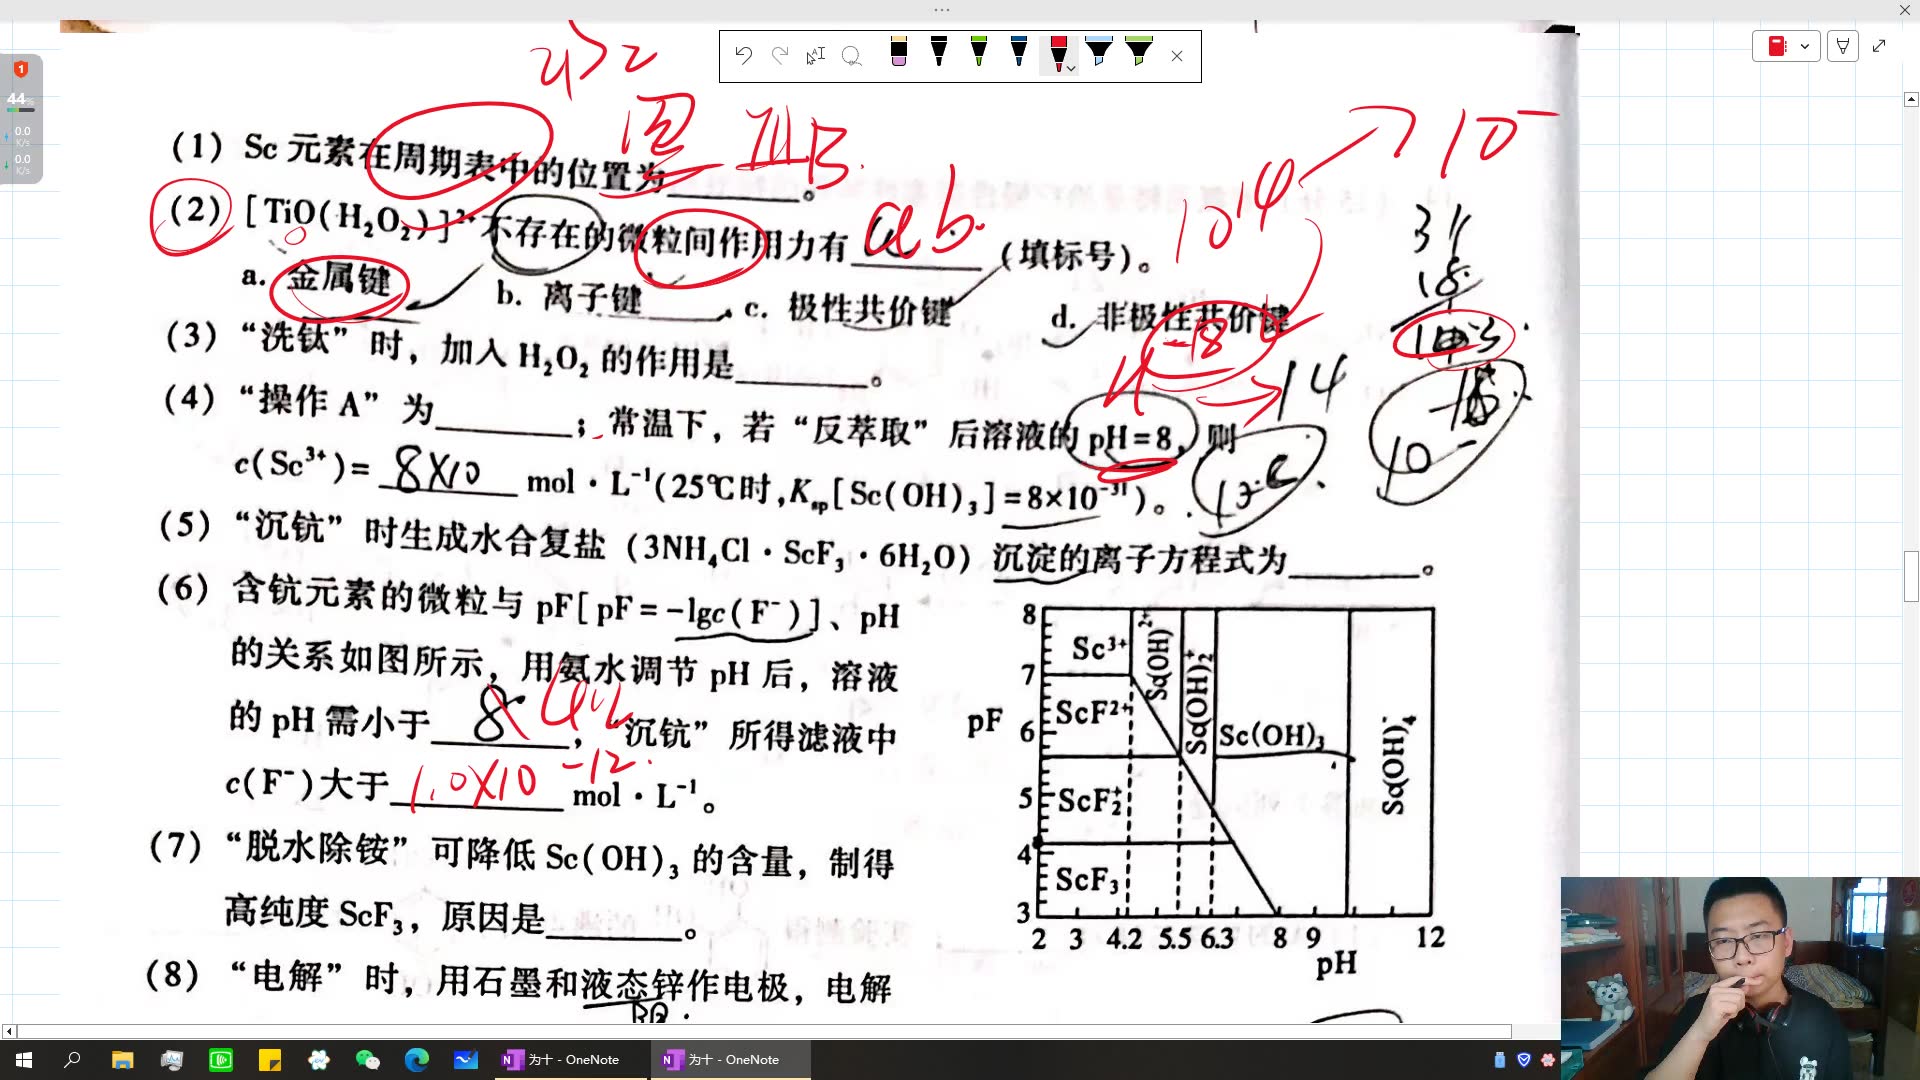 (1) Sc 元素在周期表中的位置为______。
ⅢB
(2) [TiO(H₂O₂)]²⁺不存在的微粒间作用力有______(填标号)。
ab
a. 金属键 b. 离子键 c. 极性共价键 d. 非极性共价键
(3) “洗钛”时，加入 H₂O₂ 的作用是______。
(4) “操作 A”为______；常温下，若“反萃取”后溶液的 pH=8，则
c(Sc³⁺)= 8×10 mol·L⁻¹(25℃时,Ksp[Sc(OH)₃]=8×10⁻³¹)。
(5) “沉钪”时生成水合复盐 (3NH₄Cl·ScF₃·6H₂O) 沉淀的离子方程式为______。
(6) 含钪元素的微粒与 pF[pF=-lgc(F⁻)]、pH
的关系如图所示，用氨水调节 pH 后，溶液
的 pH 需小于 8 4.2，“沉钪”所得滤液中
c(F⁻)大于 1.0×10 -12 mol·L⁻¹。
(7) “脱水除铵”可降低 Sc(OH)₃ 的含量，制得
高纯度 ScF₃，原因是______。
(8) “电解”时，用石墨和液态锌作电极，电解
10¹⁴
10⁻
14
-18
8
7
6
5
4
3
pF
Sc³⁺
ScF²⁺
ScF₂⁺
ScF₃
Sc(OH)²⁺
Sc(OH)₂⁺
Sc(OH)₃
Sc(OH)₄⁻
2 3 4.2 5.5 6.3 8 9 12
pH
1
44%
0.0
K/s
0.0
K/s
为十 - OneNote
为十 - OneNote